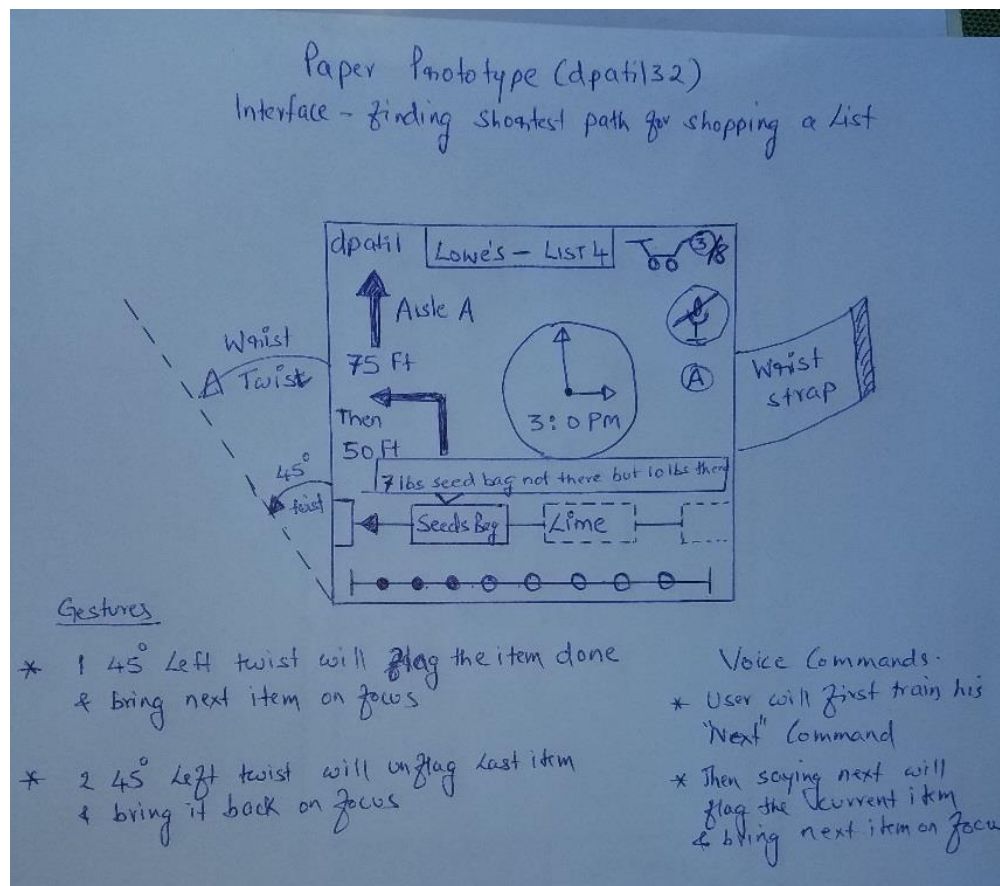 Paper Prototype (dpatil32)
Interface - finding shortest path for shopping a List
dpatil
Lowe's - LIST 4
3/8
Aisle A
75 Ft
Then
50 Ft
3:0 PM
A
7 lbs seed bag not there but 10 lbs there
Seeds Bag
Lime
Wrist
Twist
45°
twist
Wrist
strap
Gestures
* 1 45° Left twist will flag the item done
& bring next item on focus
* 2 45° Left twist will unflag Last item
& bring it back on focus
Voice Commands.
* User will first train his
"Next" Command
* Then saying next will
flag the current item
& bring next item on focus